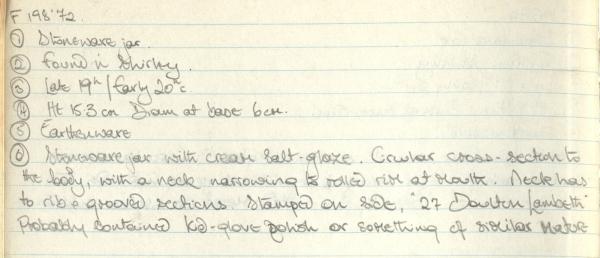 F 198'72.
① Stoneware jar.
② Found in Shirley.
③ Late 19th/Early 20th c
④ Ht 15.3 cm Diam at base 6cm.
⑤ Earthenware
⑥ Stoneware jar with cream salt-glaze. Circular cross-section to
the body, with a neck narrowing to rolled rim at mouth. Neck has
to rib & grooved sections. Stamped on side, "27 Doulton Lambeth"
Probably contained kid-glove polish or something of similar nature